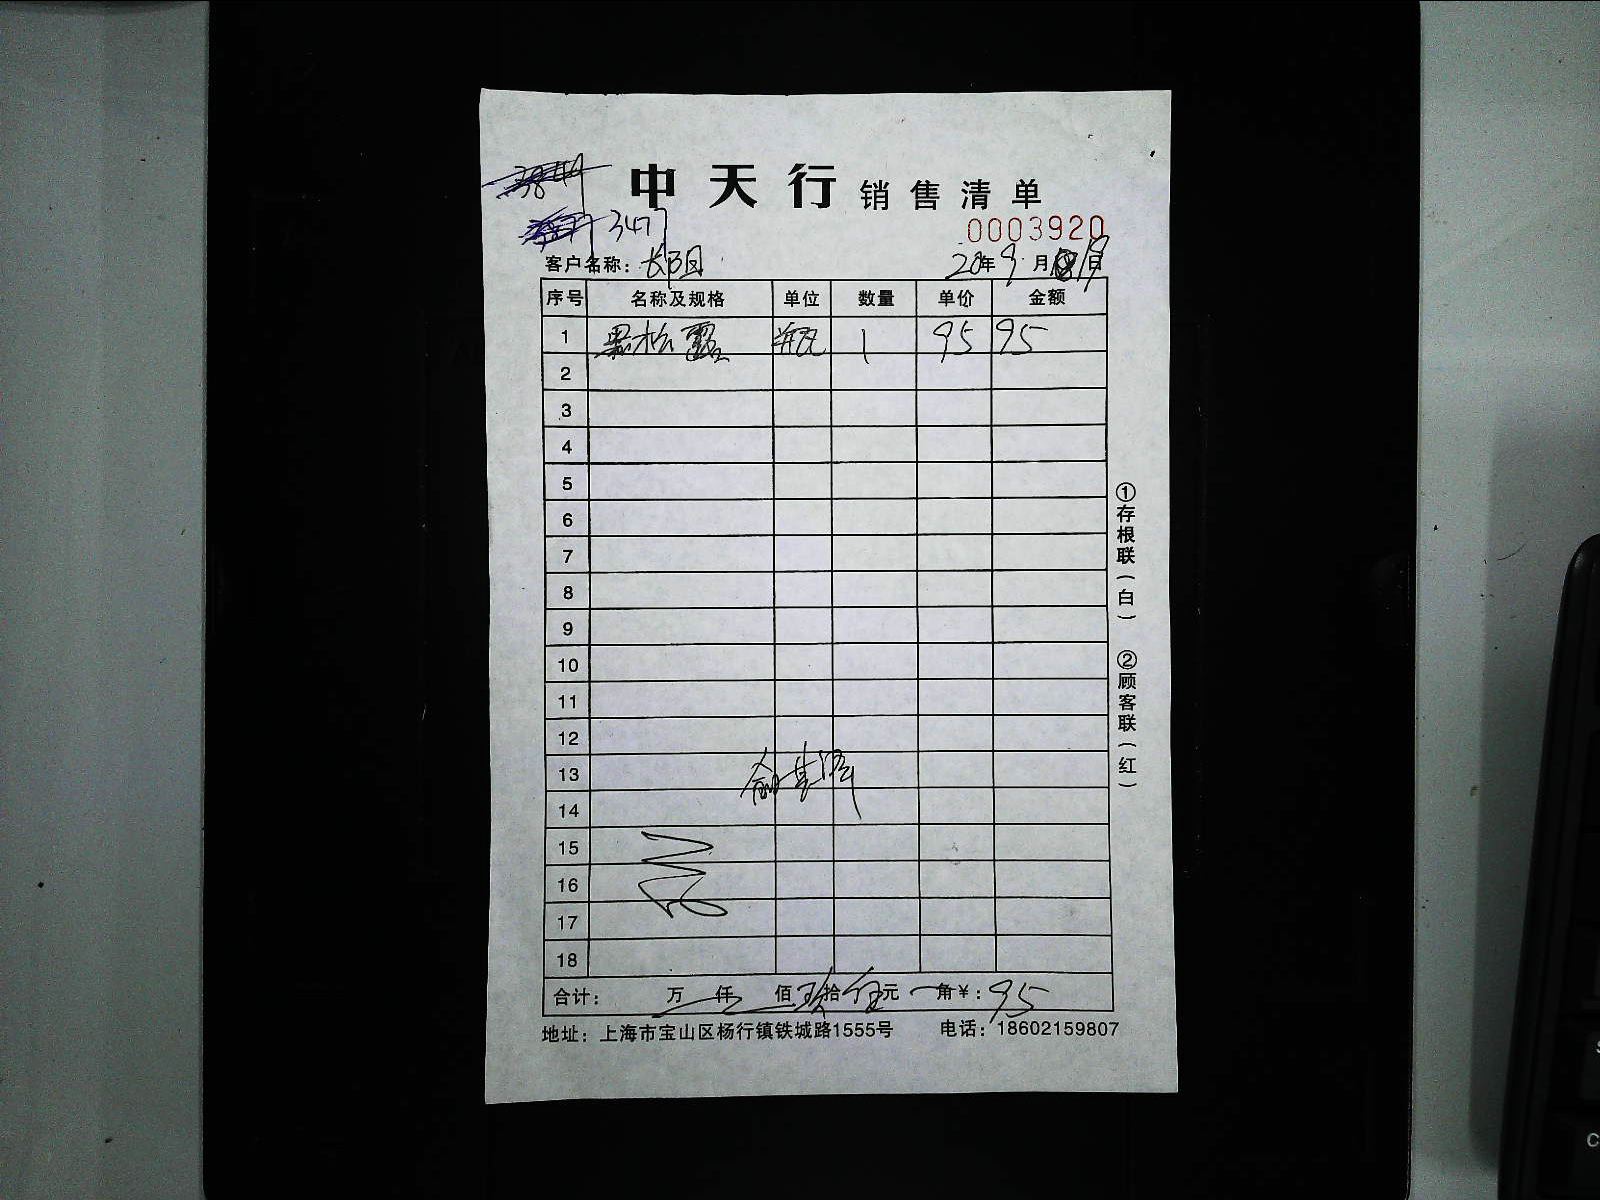 中天行 销售清单
3477
0003920
客户名称： 20年9月19日
序号 名称及规格 单位 数量 单价 金额
1 黑松露 瓶 1 95 95
2
3
4
5
6
7
8
9
10
11
12
13
14
15
16
17
18
合计： 万 仟 佰 玖拾伍元 角￥：95
地址：上海市宝山区杨行镇铁城路1555号 电话：18602159807
①存根联（白） ②顾客联（红）